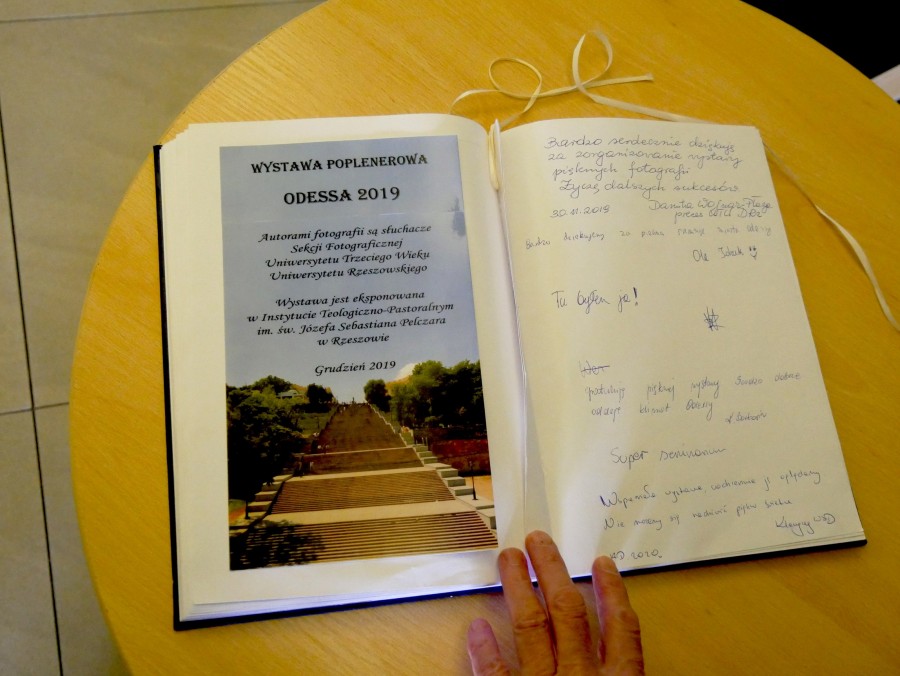 WYSTAWA POPLENEROWA
ODESSA 2019
Autorami fotografii są słuchacze
Sekcji Fotograficznej
Uniwersytetu Trzeciego Wieku
Uniwersytetu Rzeszowskiego
Wystawa jest eksponowana
w Instytucie Teologiczno-Pastoralnym
im. św. Józefa Sebastiana Pelczara
w Rzeszowie
Grudzień 2019
Bardzo serdecznie dziękuję
za zorganizowanie wystawy
pięknych fotografii
Życzę dalszych sukcesów
30.11.2019 Danuta
prezes
Bardzo dziękujemy za
Ola
Tu byłem ja!
gratuluję pięknej wystawy Bardzo dobrze
klimat Odessy
Super seminarium
Wspaniała wystawa, 
Nie możemy się nadziwić
2020